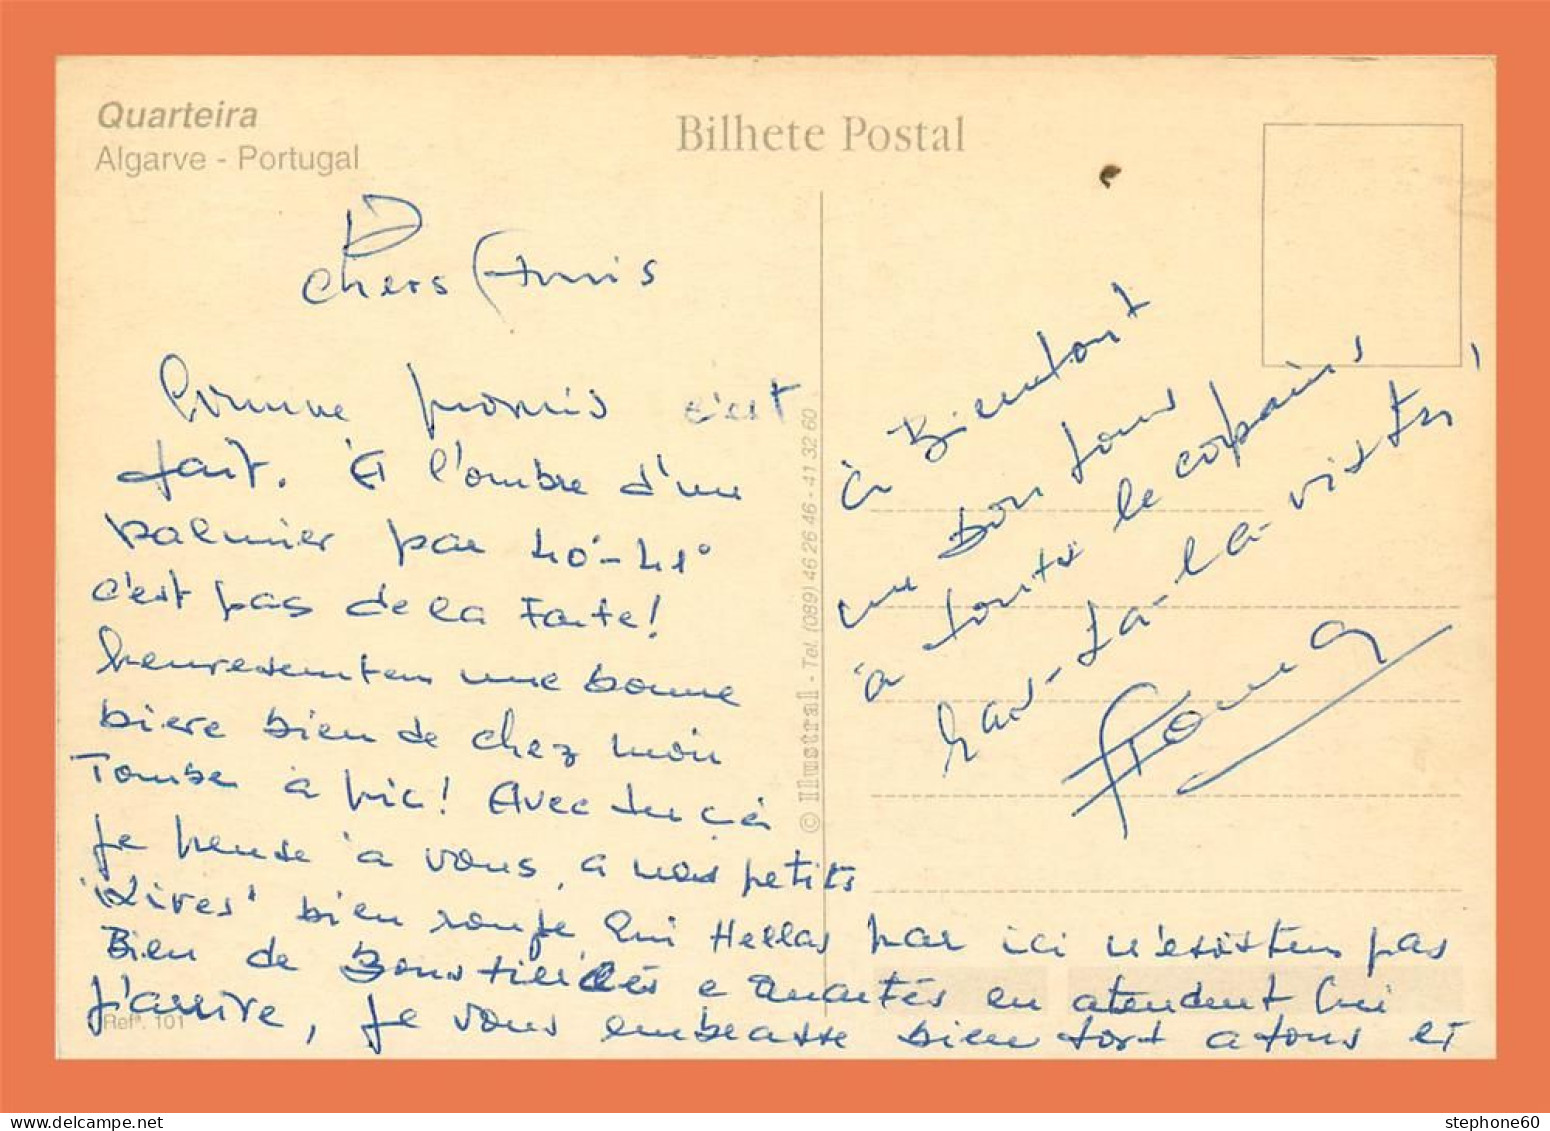 Quarteira
Algarve - Portugal
Bilhete Postal
Chers Amis
Comme promis c'est
fait. A l'ombre d'un
palmier par 40°-41°
c'est pas de la Tarte!
heuresemten une bonne
biere bien de chez moi
Tombe à pic! Avec
je pense à vous, a nos petits
bien rouge, Hellas par ici n'existen pas
Bien de e en atendent
j'arrive, je vous embrasse bien fort a tous et
à Bientont
un Bon jour
a toutes le copains
has-ta-la-vista,
© Ilustral - Tel. (089) 46 26 46 - 41 32 60
Refª. 101
stephone60